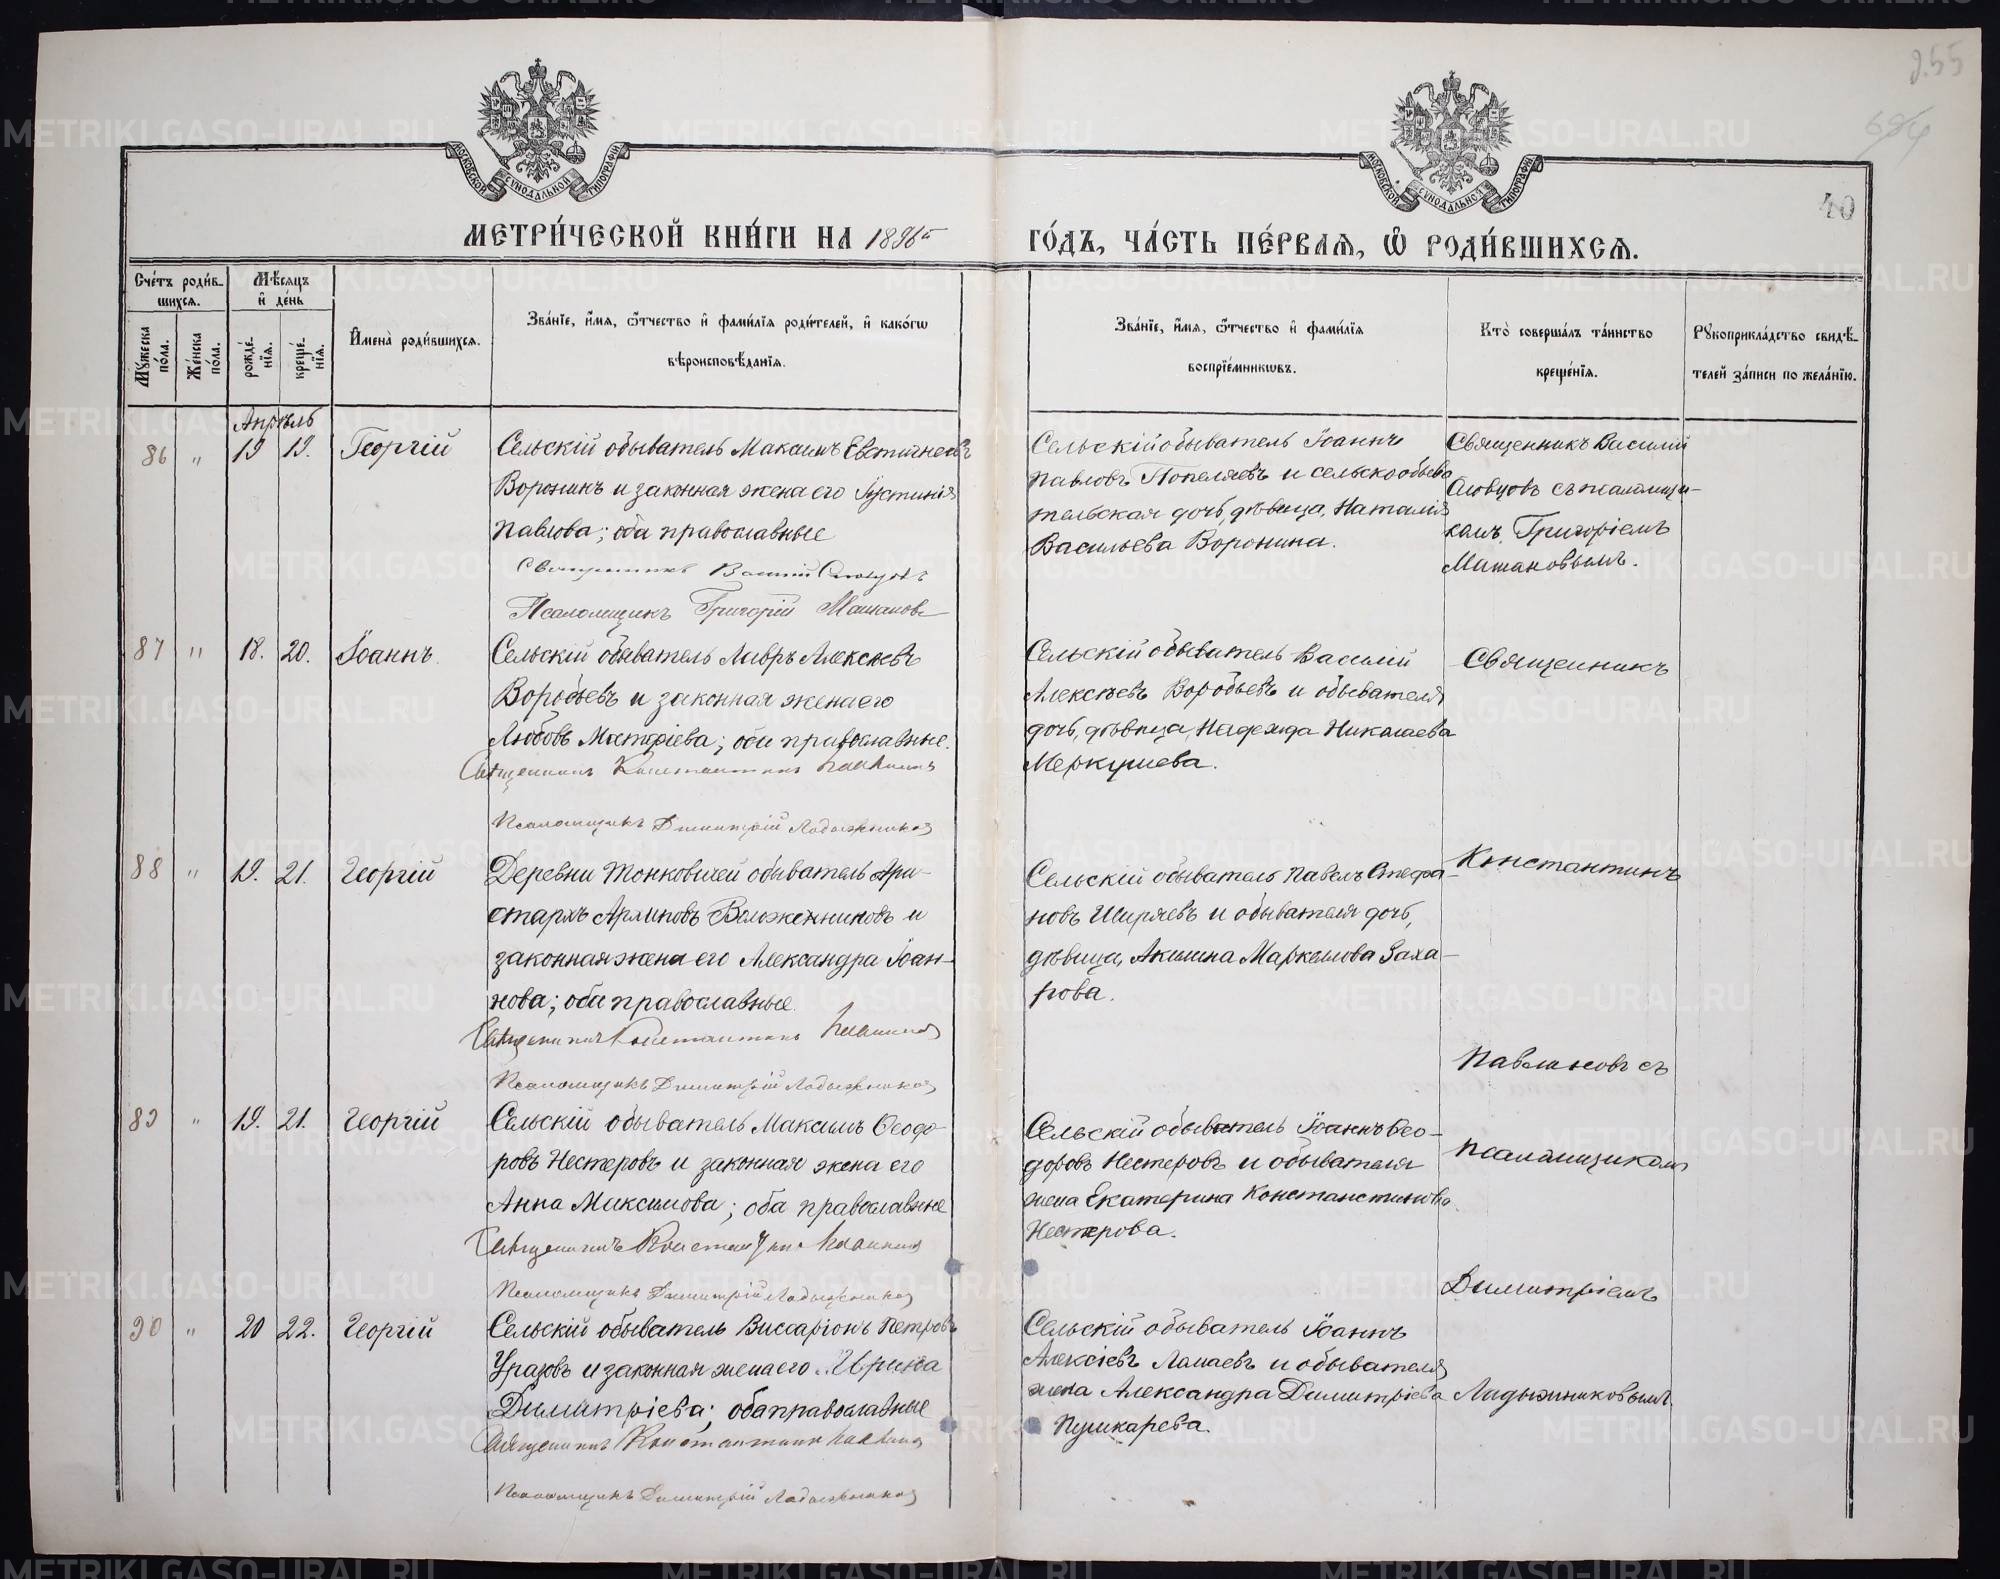 255
694
40
МОСКОВСКОЙ СѴНОДАЛЬНОЙ ТИПОГРАФІИ
МОСКОВСКОЙ СѴНОДАЛЬНОЙ ТИПОГРАФІИ
МЕТРИ́ЧЕСКОЙ КНИ́ГИ НА 1896й
ГО́ДЪ, ЧА́СТЬ ПЕ́РВАѦ, Ѡ РОДИ́ВШИХСѦ.
Сче́тъ роди́в-
шихсѧ.
Мꙋ́жеска по́ла.
Же́нска по́ла.
Мѣ́сѧцъ
и҆ де́нь
рожде́-
нїѧ.
креще́-
нїѧ.
И҆мена̀ роди́вшихсѧ.
Зва́нїе, и҆́мѧ, ѻ҆́тчество и҆ фами́лїѧ роди́телей, и҆ како́гѡ
вѣроисповѣ́данїѧ.
Зва́нїе, и҆́мѧ, ѻ҆́тчество и҆ фами́лїѧ
воспрїе́мникѡвъ.
Кто̀ соверша́лъ та́инство
креще́нїѧ.
Рꙋкоприкла́дство свидѣ́-
телей за́писи по жела́нїю.
Апрѣль
86 " 19 19. Георгій
Сельскій обыватель Максимъ Евстигнеевъ
Воронинъ и законная жена его Іустинія
Павлова; оба православные
Священникъ Василій Словцовъ
Псаломщикъ Григорій Машановъ
Сельскій обыватель Іоаннъ
Павловъ Попеляевъ и сельскообыва
тельская дочь, дѣвица, Наталія
Васильева Воронина.
Священникъ Василій
Словцовъ съ псаломщи-
комъ Григоріемъ
Машановымъ.
87 " 18. 20. Іоаннъ
Сельскій обыватель Лавръ Алексѣевъ
Воробьевъ и законная жена его
Любовь Дмитріева; оба православные.
Священникъ Константинъ
Псаломщикъ Димитрій Ладыжниковъ
Сельскій обыватель Василій
Алексѣевъ Воробьевъ и обывателя
дочь, дѣвица, Надежда Николаева
Меркушева.
Священникъ
88 " 19. 21. Георгій
Деревни обыватель Ари-
стархъ и
законная жена его Александра Іоан-
нова; оба православные.
Священникъ Константинъ
Псаломщикъ Димитрій Ладыжниковъ
Сельскій обыватель Павелъ Стефа-
новъ Ширяевъ и обывателя дочь,
дѣвица, Акилина Маркелова Заха-
рова.
Константинъ
Павлиновъ съ
89 " 19. 21. Георгій
Сельскій обыватель Максимъ Ѳеодо-
ровъ Нестеровъ и законная жена его
Анна Максимова; оба православные
Священникъ Константинъ
Псаломщикъ Димитрій Ладыжниковъ
Сельскій обыватель Іоаннъ Ѳео-
доровъ Нестеровъ и обывателя
жена Екатерина Константинова
Нестерова.
псаломщикомъ
Димитріемъ
90 " 20 22. Георгій
Сельскій обыватель Виссаріонъ Петровъ
Уразовъ и законная жена его Ирина
Димитріева; оба православные
Священникъ Константинъ
Псаломщикъ Димитрій Ладыжниковъ
Сельскій обыватель Іоаннъ
Алексіевъ Лапаевъ и обывателя
жена Александра Димитріева
Пушкарева.
Ладыжниковымъ.
METRIKI.GASO-URAL.RU